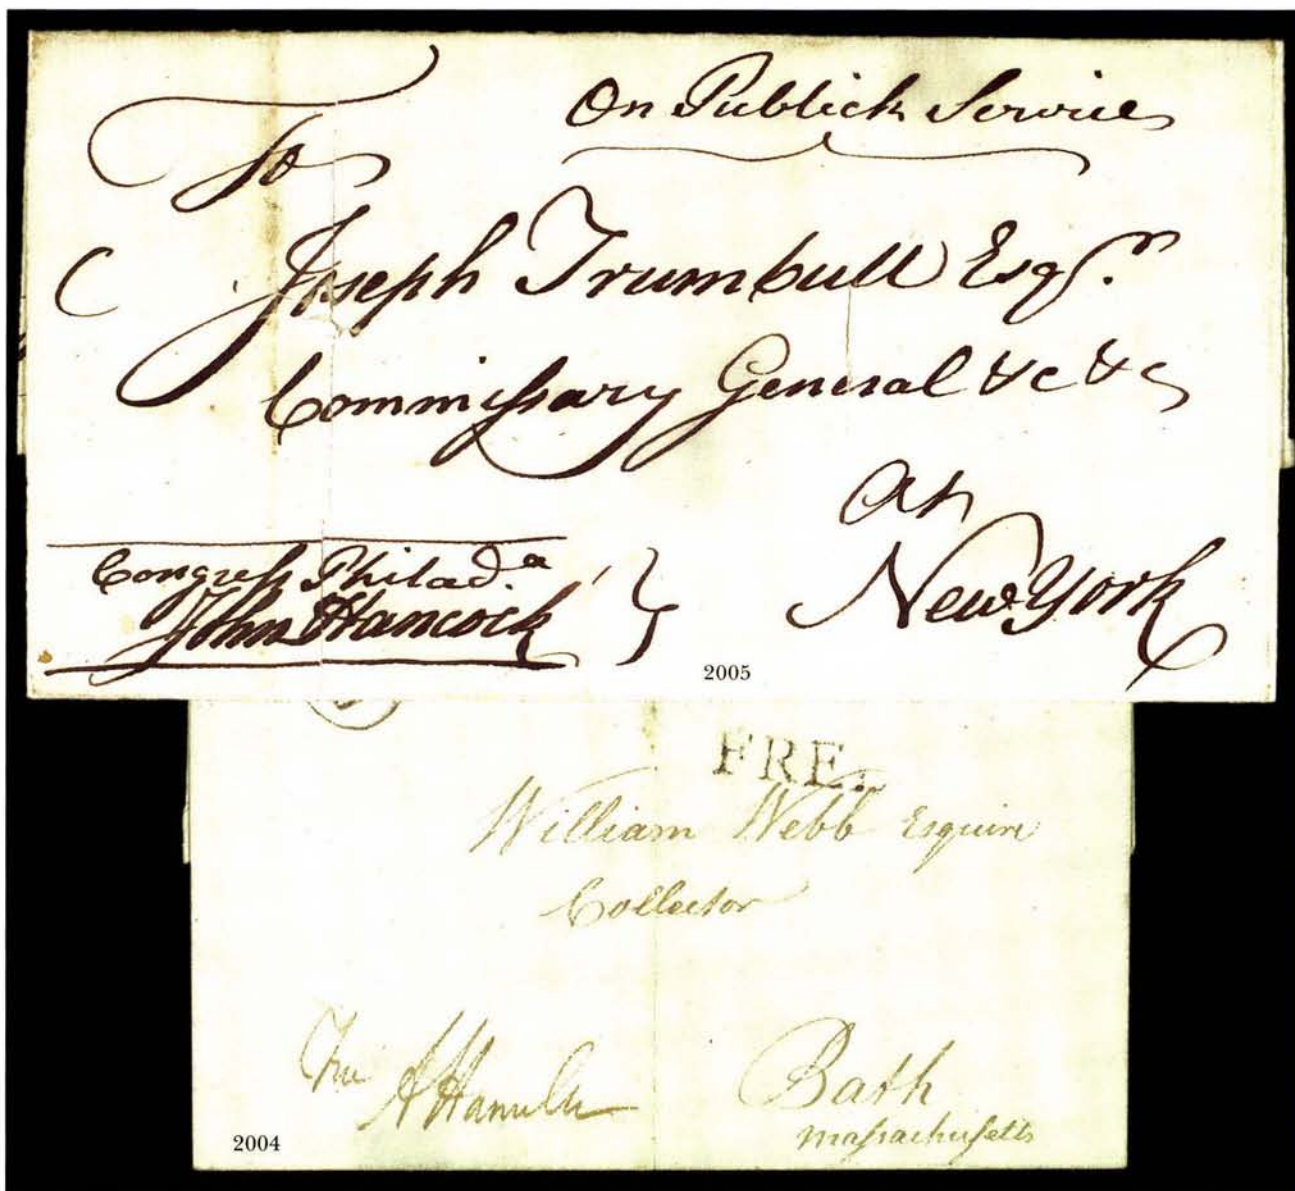 On Publick Service
To
Joseph Trumbull Esqr.
Commissary General &c &c
At
New York
Congress Philada.
John Hancock
2005
FRE
William Webb Esquire
Collector
Free
A Hamilton
Bath
Massachusetts
2004